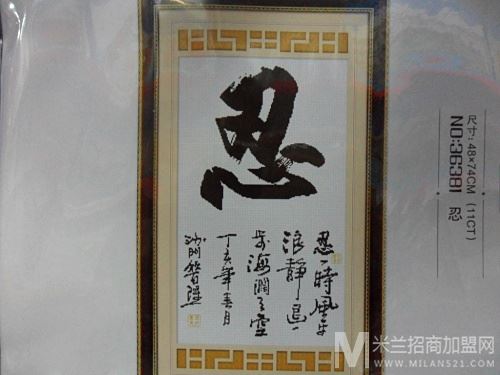 忍
忍一时風平
浪靜退一
步海阔天空
丁亥年春月
尺寸：48×74CM（11CT）
NO:36381 忍
米兰招商加盟网
WWW.MILAN521.COM